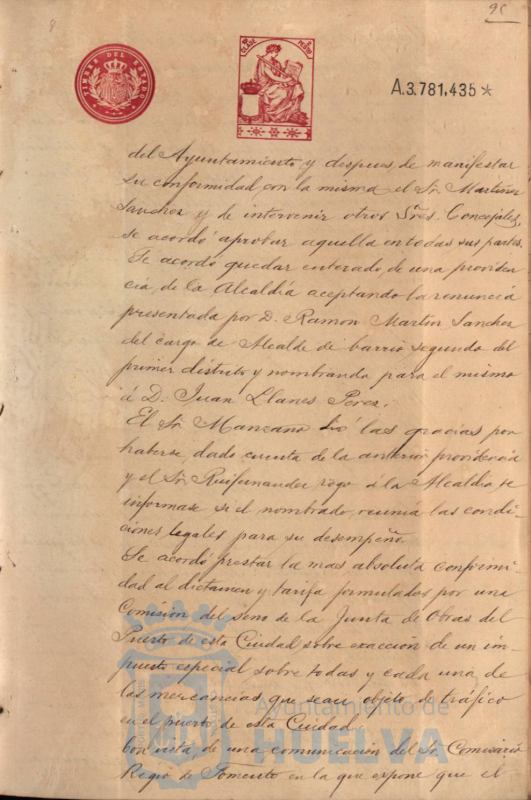 8
95
TIMBRE DEL ESTADO
A.3.781.435*
del Ayuntamiento y despues de manifestar
su conformidad con la misma el Sr. Martinez
Sanchez y de intervenir otros Sres. Concejales,
se acordó aprobar aquella en todas sus partes.
Se acordó quedar enterado de una providen-
cia de la Alcaldía aceptando la renuncia
presentada por D. Ramon Martin Sanchez
del cargo de Alcalde de barrio segundo del
primer distrito y nombrando para el mismo
á D. Juan Llanes Perez.
El Sr. Manzano dió las gracias por
haberse dado cuenta de la anterior providencia
y el Sr. Ruifernandez rogo á la Alcaldía se
informase si el nombrado reunia las condi-
ciones legales para su desempeño.
Se acordó prestar la mas absoluta conformi-
dad al dictamen y tarifa formulados por una
Comisión del seno de la Junta de Obras del
Puerto de esta Ciudad sobre exacción de un im-
puesto especial sobre todas y cada una de
las mercancias que sean objeto de tráfico
en el puerto de esta Ciudad.
Con vista de una comunicación del Sr. Comisario
Regio de Fomento en la que expone que el
Ayuntamiento de
HUELVA